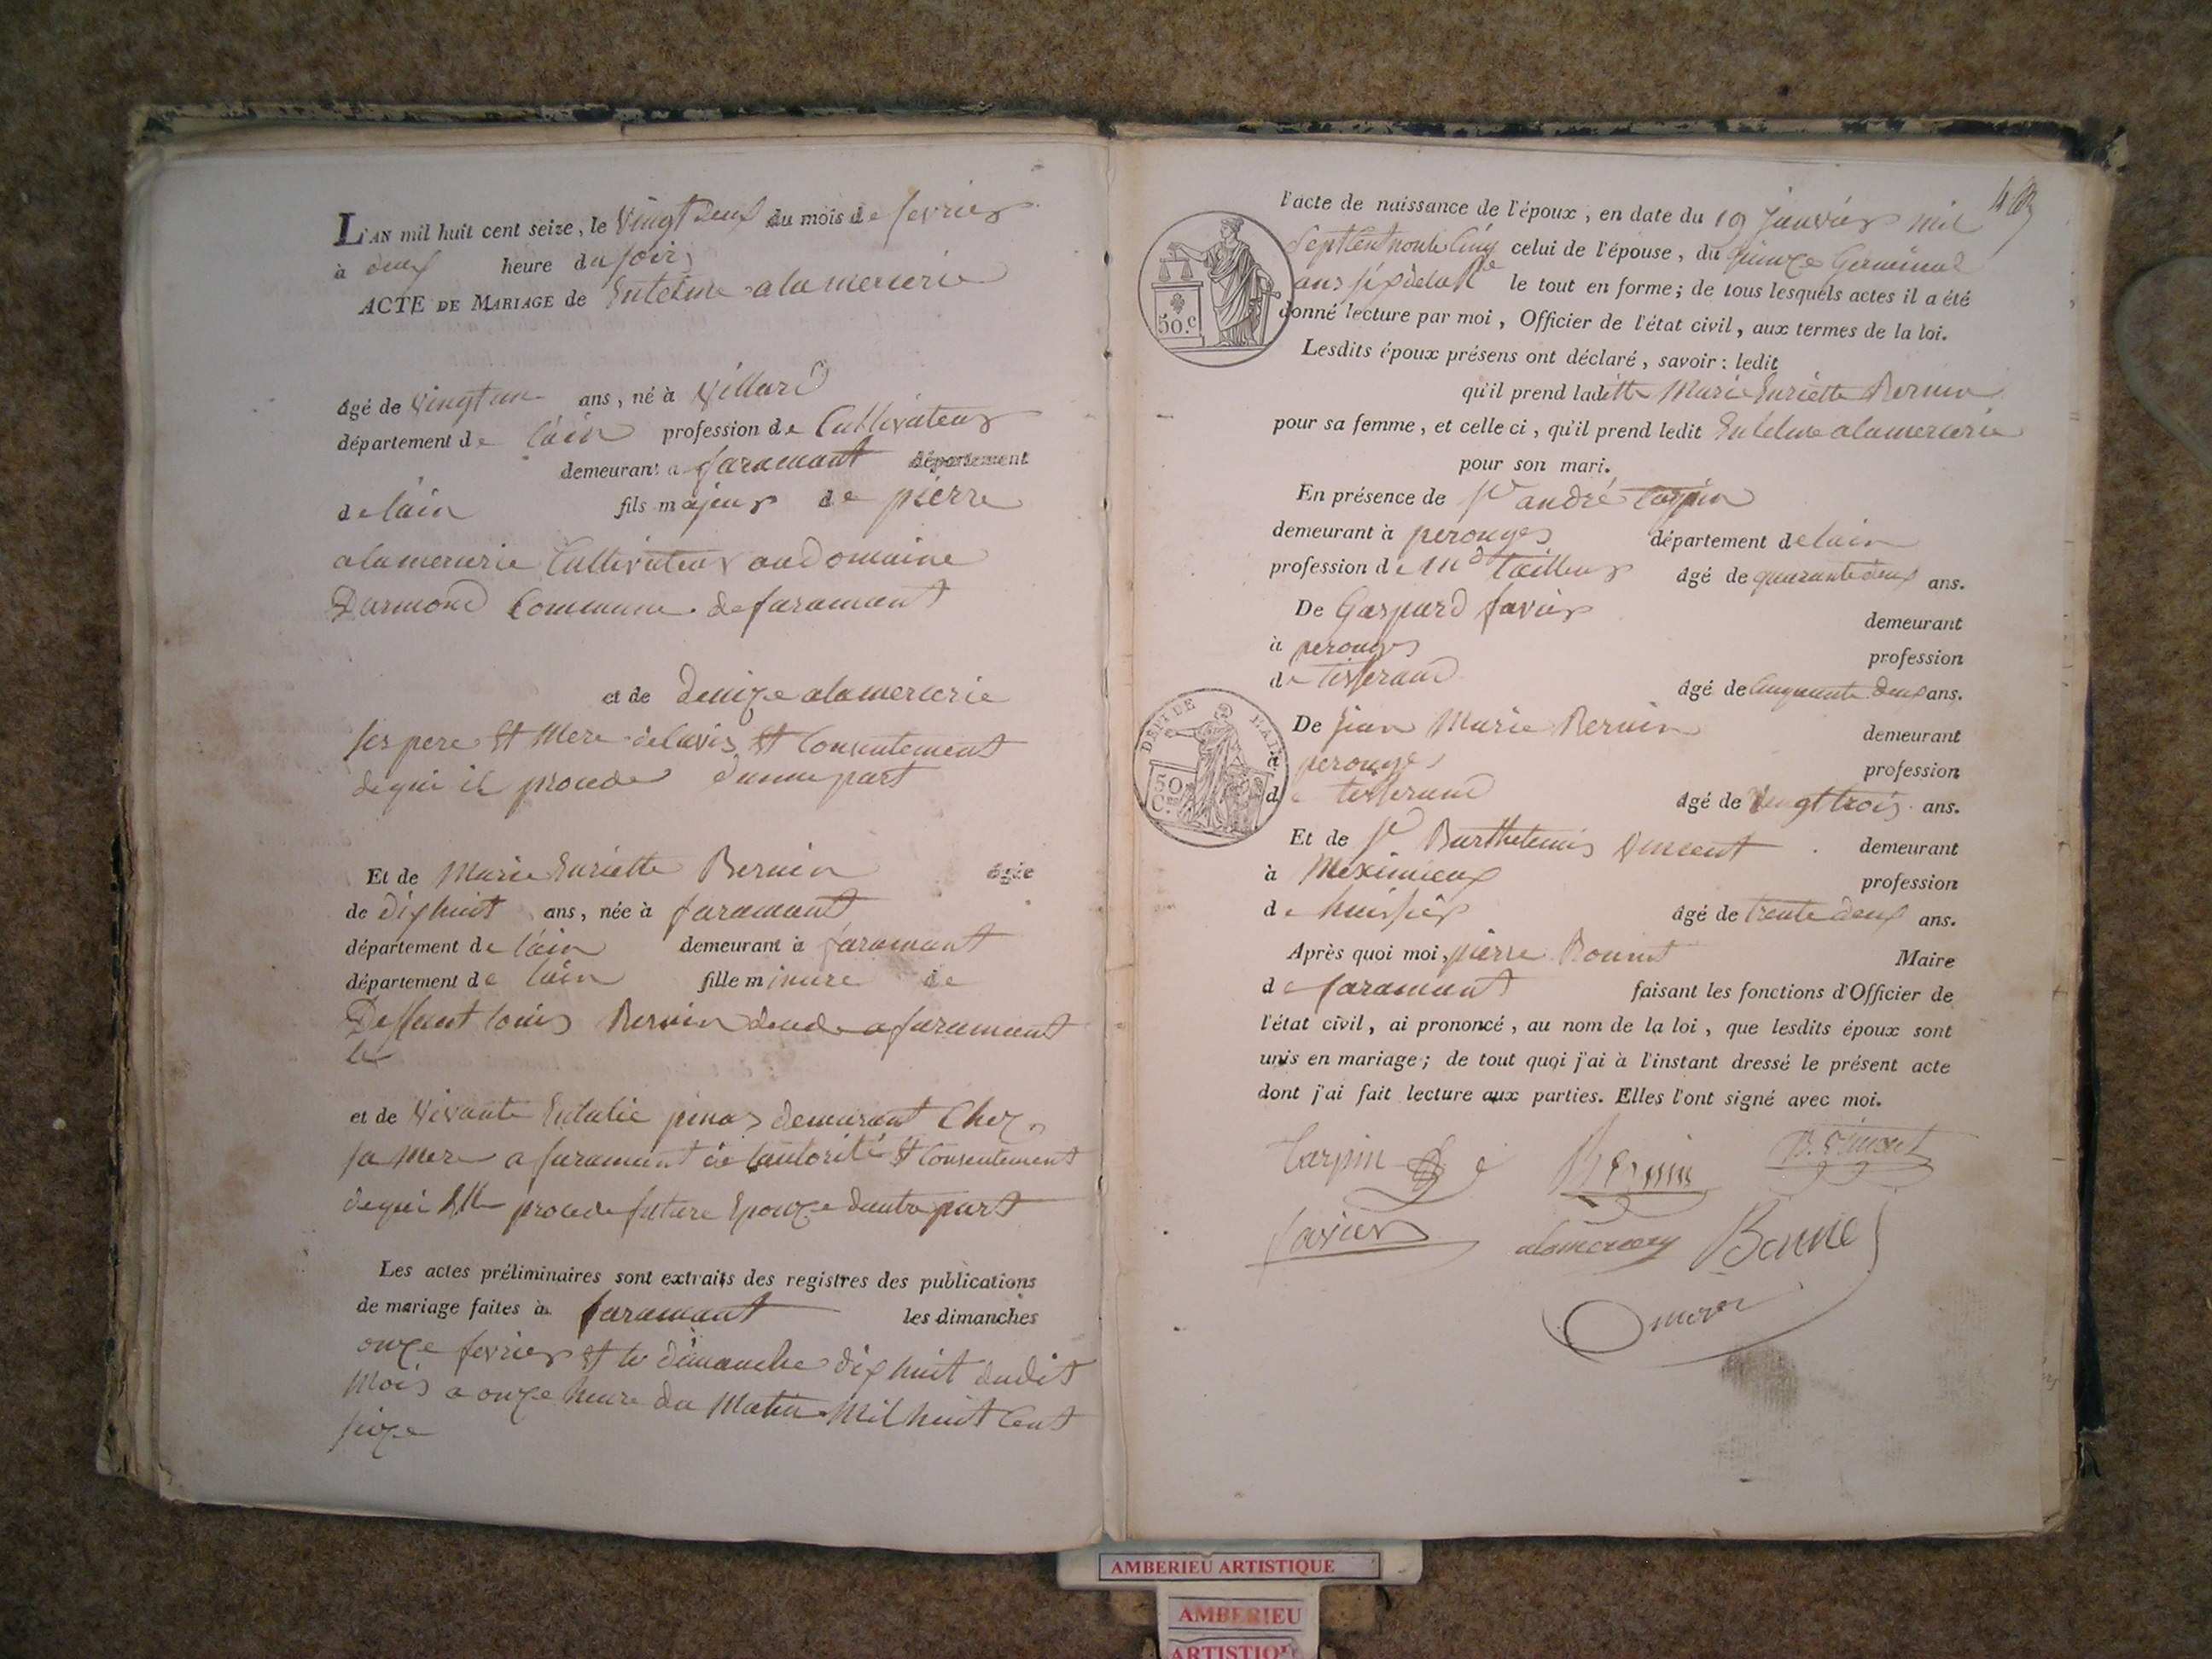 L'AN mil huit cent seize, le Vingt deux du mois de fevrier
à deux heure du soir
ACTE DE MARIAGE de Entelme alamercerie
âgé de vingt un ans, né à Villard
département de l'ain profession de Cultivateur
demeurant a faramant département
de lain fils majeur de pierre
alamercerie Cultivateur au Domaine
Darmond Commune de faramant
et de denize alamercerie
ses pere Et Mere de lavis Et Consentement
de qui il procede d'une part
Et de Marie Enriette Bernin âgée
de dix huit ans, née à faramant
département de l'ain demeurant à faramant
département de lain fille mineure de
Deffunt louis Bernin decede a faramant
le
et de Vivante Eulalie demeurant Chez
sa mere a faramant de lautorité Et Consentement
de qui Elle procede future Epouze dautre part
Les actes préliminaires sont extraits des registres des publications
de mariage faites à faramant les dimanches
onze fevrier et le dimanche dix huit dudit
Mois a onze heure du Matin Mil huit Cent
sieze
l'acte de naissance de l'époux, en date du 19 janvier mil
Sept Cent celui de l'épouse, du quinze Germinal
ans six de la Rque le tout en forme; de tous lesquels actes il a été
donné lecture par moi, Officier de l'état civil, aux termes de la loi.
50.c
Lesdits époux présens ont déclaré, savoir: ledit
qu'il prend laditte Marie Enriette Bernin
pour sa femme, et celle ci, qu'il prend ledit Entelme alamercerie
pour son mari.
En présence de Sr andré Carpin
demeurant à perouges département de lain
profession de Md tailleur âgé de quarante deux ans.
De Gaspard favier demeurant
à perouges profession
de tisserand âgé de Cinquante deux ans.
De Jean Marie Bernin demeurant
à perouges profession
de tisserand âgé de vingt trois ans.
50 C.
Et de Sr Barthelemis Vincent demeurant
à Meximieux profession
de huissier âgé de trente deux ans.
Après quoi moi, pierre Bonnet Maire
de faramant faisant les fonctions d'Officier de
l'état civil, ai prononcé, au nom de la loi, que lesdits époux sont
unis en mariage; de tout quoi j'ai à l'instant dressé le présent acte
dont j'ai fait lecture aux parties. Elles l'ont signé avec moi.
Carpin Bernin B. Vincent
favier alamercery
AMBERIEU ARTISTIQUE
AMBERIEU